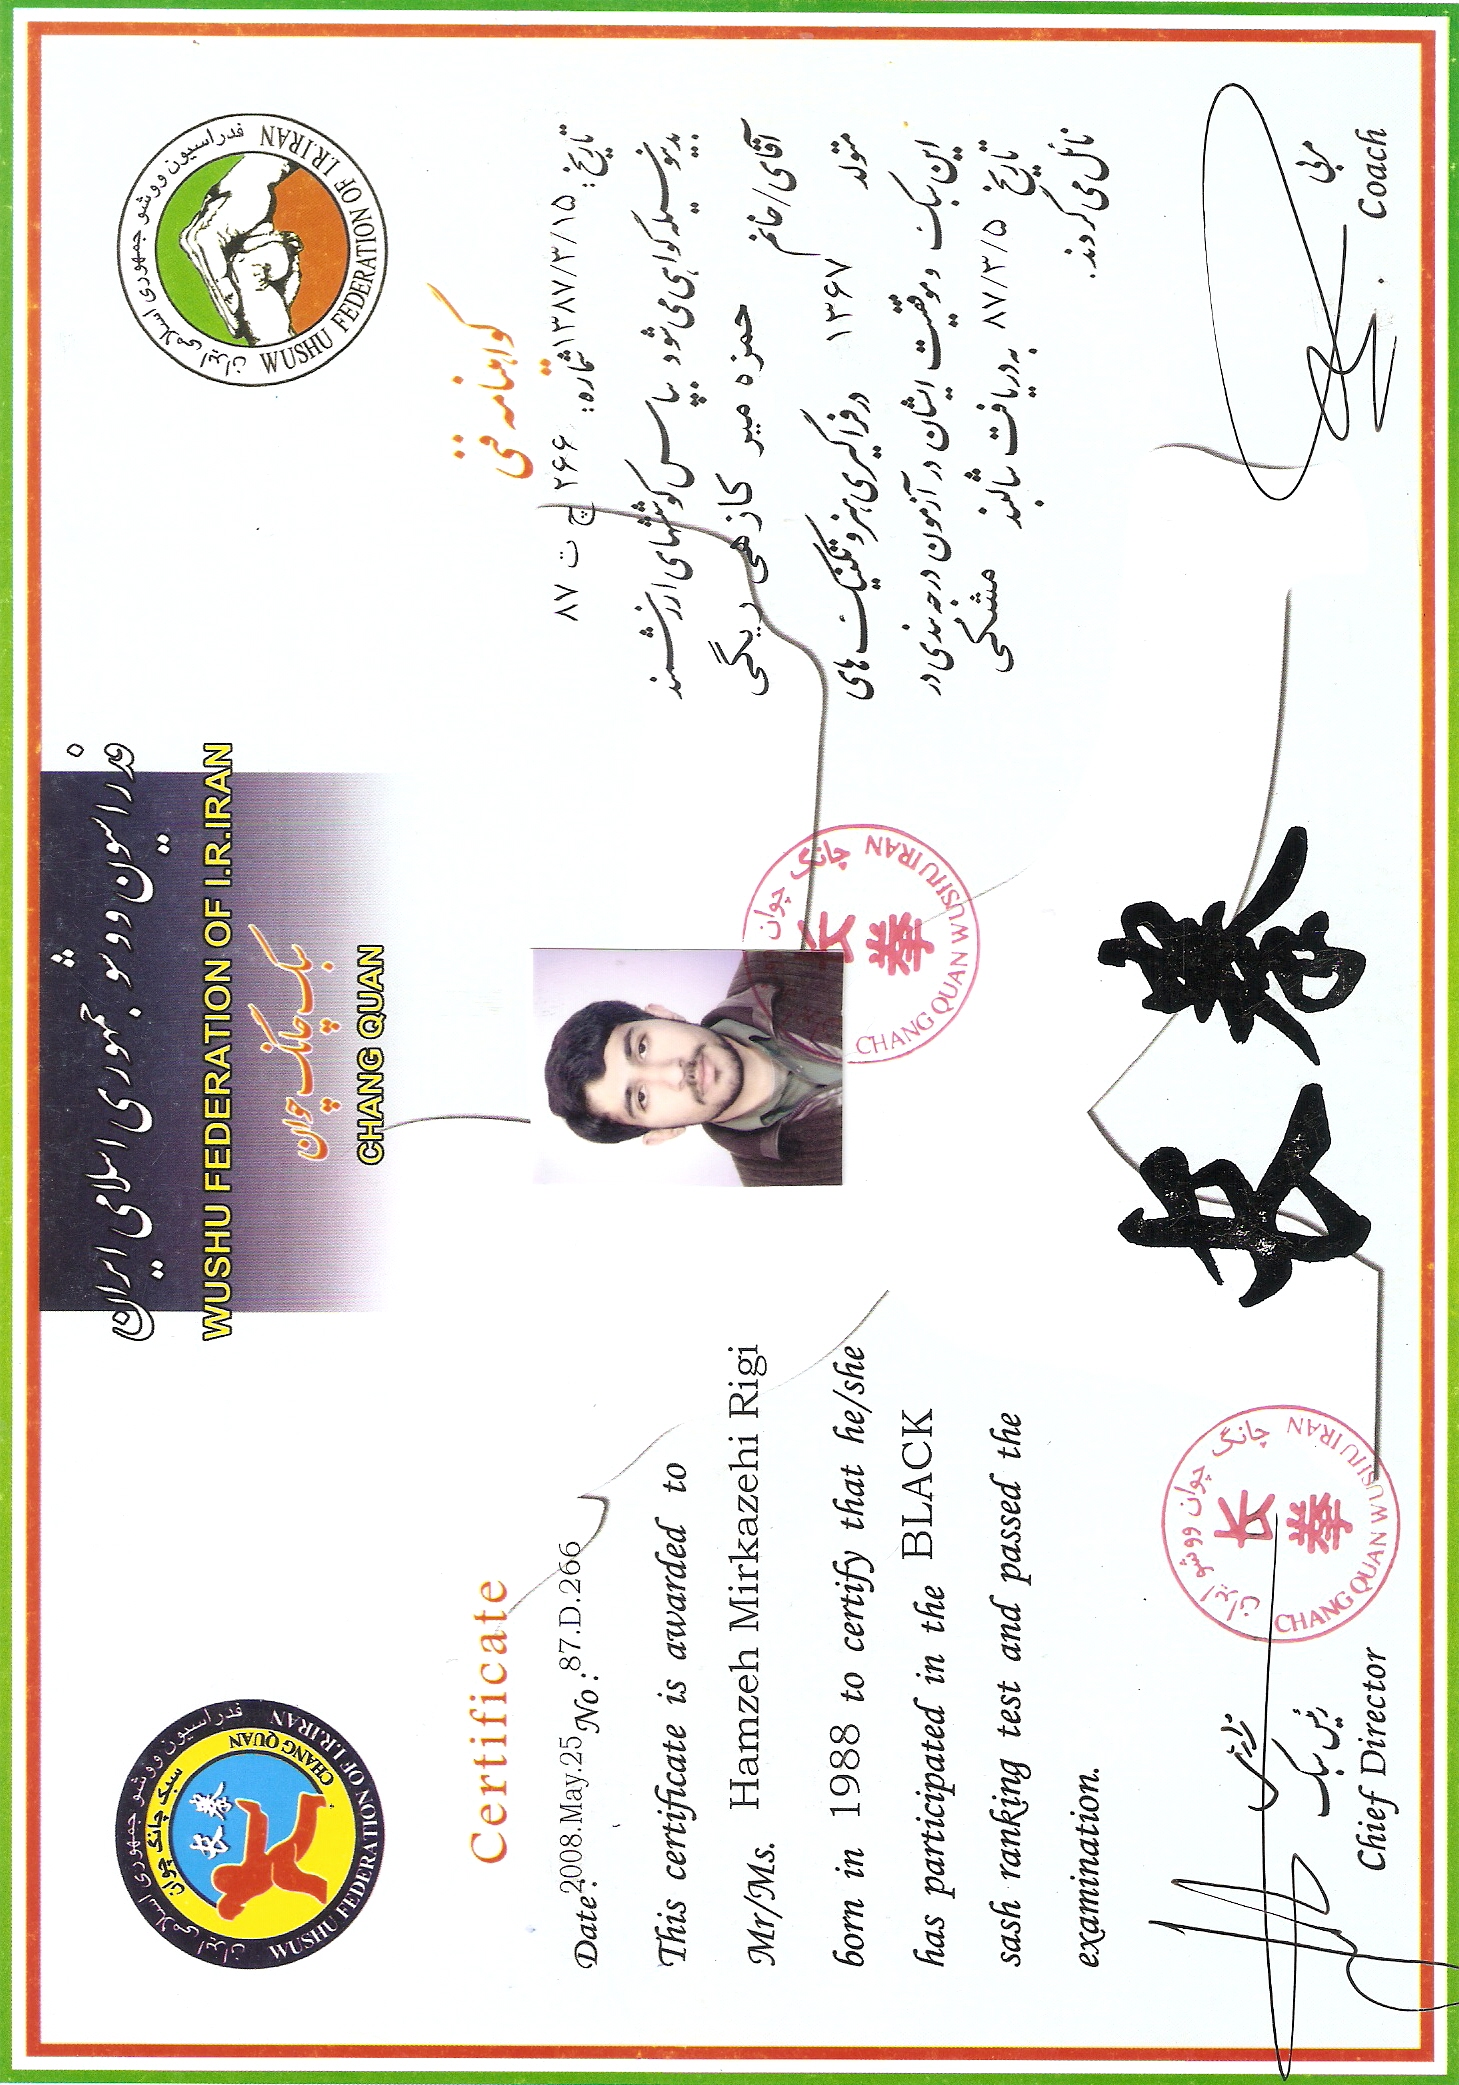 فدراسیون ووشو جمهوری اسلامی ایران
WUSHU FEDERATION OF I.R.IRAN
سبک چانگ چوان
CHANG QUAN
فدراسیون ووشو جمهوری اسلامی ایران
WUSHU FEDERATION OF I.R.IRAN
سبک چانگ چوان
CHANG QUAN
长拳
فدراسیون ووشو جمهوری اسلامی ایران
WUSHU FEDERATION OF I.R.IRAN
Certificate
Date: 2008.May.25 No: 87.D.266
This certificate is awarded to
Mr/Ms. Hamzeh Mirkazehi Rigi
born in 1988 to certify that he/she
has participated in the BLACK
sash ranking test and passed the
examination.
گواهینامه فنی
تاریخ: ۱۳۸۷/۳/۱۵ شماره: ۲۶۶ ج ت ۸۷
بدینوسیله گواهی می شود بپاس کوششهای ارزشمند
آقای/خانم حمزه میر کازهی ریگی
متولد ۱۳۶۷ در فراگیری هنر و تکنیک های
این سبک و موفقیت ایشان در آزمون درجه بندی در
تاریخ ۸۷/۳/۵ به دریافت شالبند مشکی
نائل می گردند.
چانگ چوان
长拳
CHANG QUAN WUSHU IRAN
长拳
چانگ چوان ووشو ایران
长拳
CHANG QUAN WUSHU IRAN
رئیس سبک
Chief Director
مربی
Coach